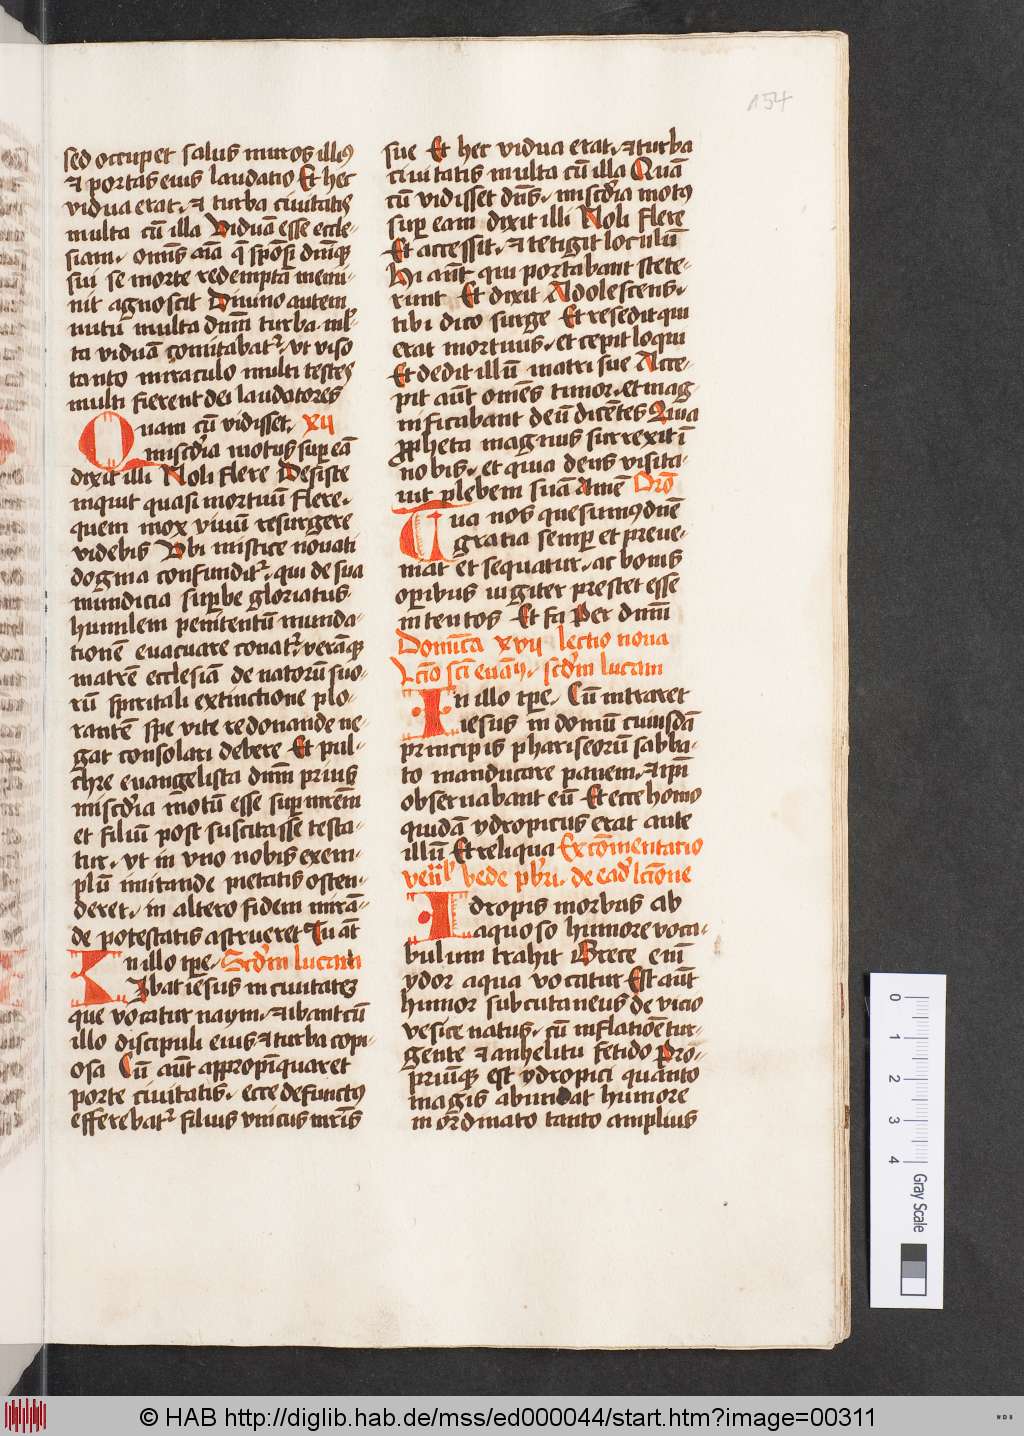 154
sed occupet salus muros illiꝰ
⁊ portas eius laudatio Et hec
vidua erat· ⁊ turba ciuitatis
multa cū illa Viduā esse eccle-
siam· omīs aīa q̄ spōsi dn̄iqꝫ
sui se morte redemptā memi-
nit agnoscit Diuino autem
nutu multa dnm̄ turba· ml̓-
ta viduā comitabat᷑· vt viso
tanto miraculo multi testes
multi fierent dei laudatores
Quam cū vidisset· xii
misc̄dia motus suꝑ eā
dixit illi Noli flere Desiste
inquit quasi mortuū flere·
quem mox viuū resurgere
videbis Vbi mistice nouati
dogma confundit᷑· qui de sua
mundicia suꝑbe gloriatus
humilem penitentū munda-
tionē euacuare conat᷑· verāqꝫ
matrē ecclesiā de natorū suo-
rū spiritali extinctione plo-
rantē spe vite redonande ne-
gat consolari debere Et pul-
chre euangelista dnm̄ prius
misc̄dia motū esse suꝑ mr̄em
et filiū post suscitasse testa-
tur· vt in vno nobis exem-
plū imitande pietatis osten-
deret· in altero fidem mirā-
de potestatis astrueret Tu aūt
In illo tp̄e· Scd̄m lucam
Ibat iesus in ciuitatē
que vocatur naym· ⁊ ibant cū
illo discipuli eius ⁊ turba copi-
osa Cū aūt appropinquaret
porte ciuitatis· ecce defunctꝰ
efferebat᷑ filius vnicus mr̄is
sue Et hec vidua erat· ⁊ turba
ciuitatis multa cū illa Quā
cū vidisset dn̄s· misc̄dia motꝰ
suꝑ eam dixit illi Noli flere
Et accessit· ⁊ tetigit loculū
Hi aūt qui portabant stete-
runt Et dixit Adolescens·
tibi dico surge Et resedit qui
erat mortuus· et cepit loqui
Et dedit illū matri sue Acce-
pit aūt omēs timor· et mag-
nificabant deū dicētes Quia
ꝓpheta magnus surrexit ī
nobis· et quia deus visita-
uit plebem suā Amē Orō
Tua nos quesumꝰ dn̄e
gratia semꝑ et preue-
niat et sequatur· ac bonis
oꝑibus iugiter prestet esse
intentos Et fa Per dnm̄
Domīca xvii lectio noua
Lc̄io sc̄i euāg· scd̄m lucam
In illo tp̄e· Cū intraret
iesus in domū cuiusdā
principis phariseorū sabba-
to manducare panem· ⁊ ip̄i
obseruabant eū Et ecce homo
quidā ydropicus erat ante
illū Et reliqua Ex cōmentario
ven̄l bede pb̄ri· de ead̄ lc̄ione
Idropis morbus ab
aquoso humore voca-
bulum trahit Grece enī
ydor aqua vocatur Est aūt
humor subcutaneus de vicio
vesice natus· cū inflatiōe tur-
gente ⁊ anhelitu fetido Pro-
priūqꝫ est ydropici quanto
magis abundat humore
inordinato tanto amplius
0 1 2 3 4
Gray Scale
© HAB http://diglib.hab.de/mss/ed000044/start.htm?image=00311